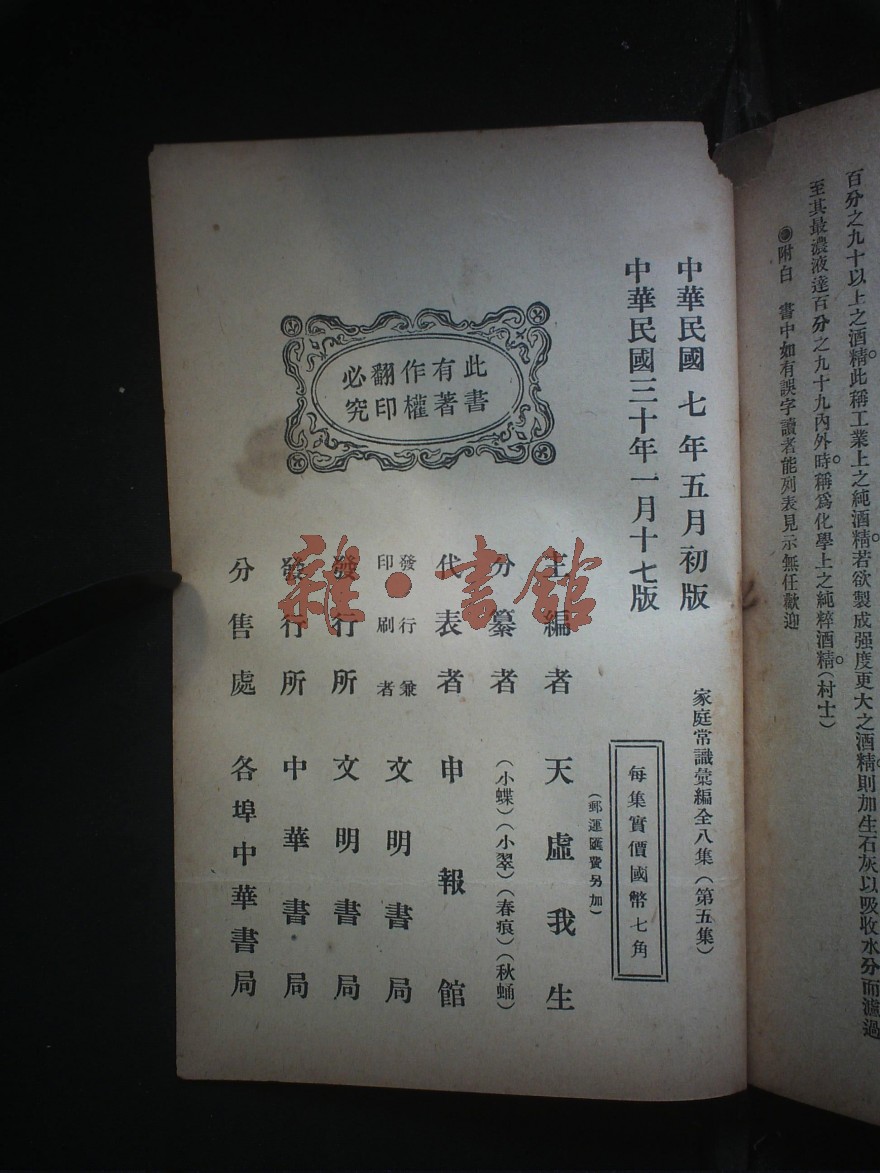 百分之九十以上之酒精。此稱工業上之純酒精。若欲製成强度更大之酒精。則加生石灰以吸收水分而濾過
至其最濃液達百分之九十九內外時。稱爲化學上之純粹酒精。(村士)
◉附白 書中如有誤字讀者能列表見示無任歡迎
中華民國七年五月初版
中華民國三十年一月十七版
家庭常識彙編全八集(第五集)
每集實價國幣七角
(郵運匯費另加)
此書
有著
作權
翻印
必究
主編者 天虛我生
分纂者 (小蝶)(小翠)(春痕)(秋蛹)
代表者 申報館
發行兼
印刷者 文明書局
發行所 文明書局
發行所 中華書局
分售處 各埠中華書局
雜·書館